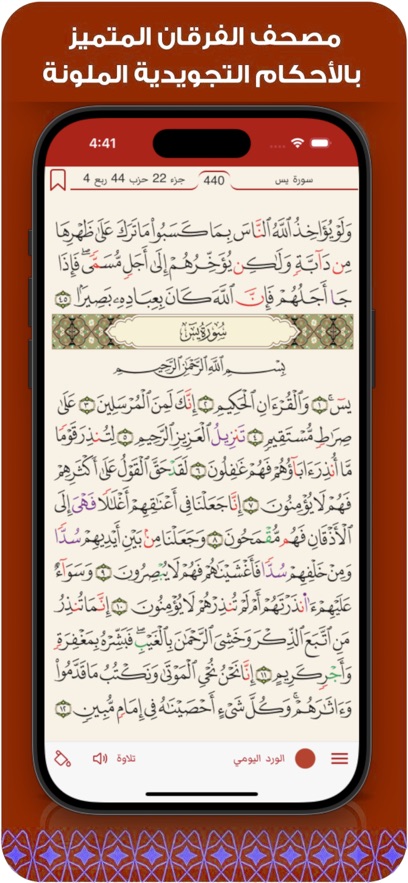 مصحف الفرقان المتميز
بالأحكام التجويدية الملونة
4:41
سورة يس
440
جزء 22 حزب 44 ربع 4
وَلَوْ يُؤَاخِذُ ٱللَّهُ ٱلنَّاسَ بِمَا كَسَبُوا۟ مَا تَرَكَ عَلَىٰ ظَهْرِهَا
مِن دَآبَّةٍ وَلَـٰكِن يُؤَخِّرُهُمْ إِلَىٰٓ أَجَلٍ مُّسَمًّى ۖ فَإِذَا
جَآءَ أَجَلُهُمْ فَإِنَّ ٱللَّهَ كَانَ بِعِبَادِهِۦ بَصِيرًۢا ٤٥
سُورَةُ يسٓ
بِسْمِ ٱللَّهِ ٱلرَّحْمَـٰنِ ٱلرَّحِيمِ
يسٓ ١ وَٱلْقُرْءَانِ ٱلْحَكِيمِ ٢ إِنَّكَ لَمِنَ ٱلْمُرْسَلِينَ ٣ عَلَىٰ
صِرَٰطٍ مُّسْتَقِيمٍ ٤ تَنزِيلَ ٱلْعَزِيزِ ٱلرَّحِيمِ ٥ لِتُنذِرَ قَوْمًا
مَّآ أُنذِرَ ءَابَآؤُهُمْ فَهُمْ غَـٰفِلُونَ ٦ لَقَدْ حَقَّ ٱلْقَوْلُ عَلَىٰٓ أَكْثَرِهِمْ
فَهُمْ لَا يُؤْمِنُونَ ٧ إِنَّا جَعَلْنَا فِىٓ أَعْنَـٰقِهِمْ أَغْلَـٰلًا فَهِىَ إِلَى
ٱلْأَذْقَانِ فَهُم مُّقْمَحُونَ ٨ وَجَعَلْنَا مِنۢ بَيْنِ أَيْدِيهِمْ سَدًّا
وَمِنْ خَلْفِهِمْ سَدًّا فَأَغْشَيْنَـٰهُمْ فَهُمْ لَا يُبْصِرُونَ ٩ وَسَوَآءٌ
عَلَيْهِمْ ءَأَنذَرْتَهُمْ أَمْ لَمْ تُنذِرْهُمْ لَا يُؤْمِنُونَ ١٠ إِنَّمَا تُنذِرُ
مَنِ ٱتَّبَعَ ٱلذِّكْرَ وَخَشِىَ ٱلرَّحْمَـٰنَ بِٱلْغَيْبِ ۖ فَبَشِّرْهُ بِمَغْفِرَةٍ
وَأَجْرٍ كَرِيمٍ ١١ إِنَّا نَحْنُ نُحْىِ ٱلْمَوْتَىٰ وَنَكْتُبُ مَا قَدَّمُوا۟
وَءَاثَـٰرَهُمْ ۚ وَكُلَّ شَىْءٍ أَحْصَيْنَـٰهُ فِىٓ إِمَامٍ مُّبِينٍ ١٢
الورد اليومي
تلاوة